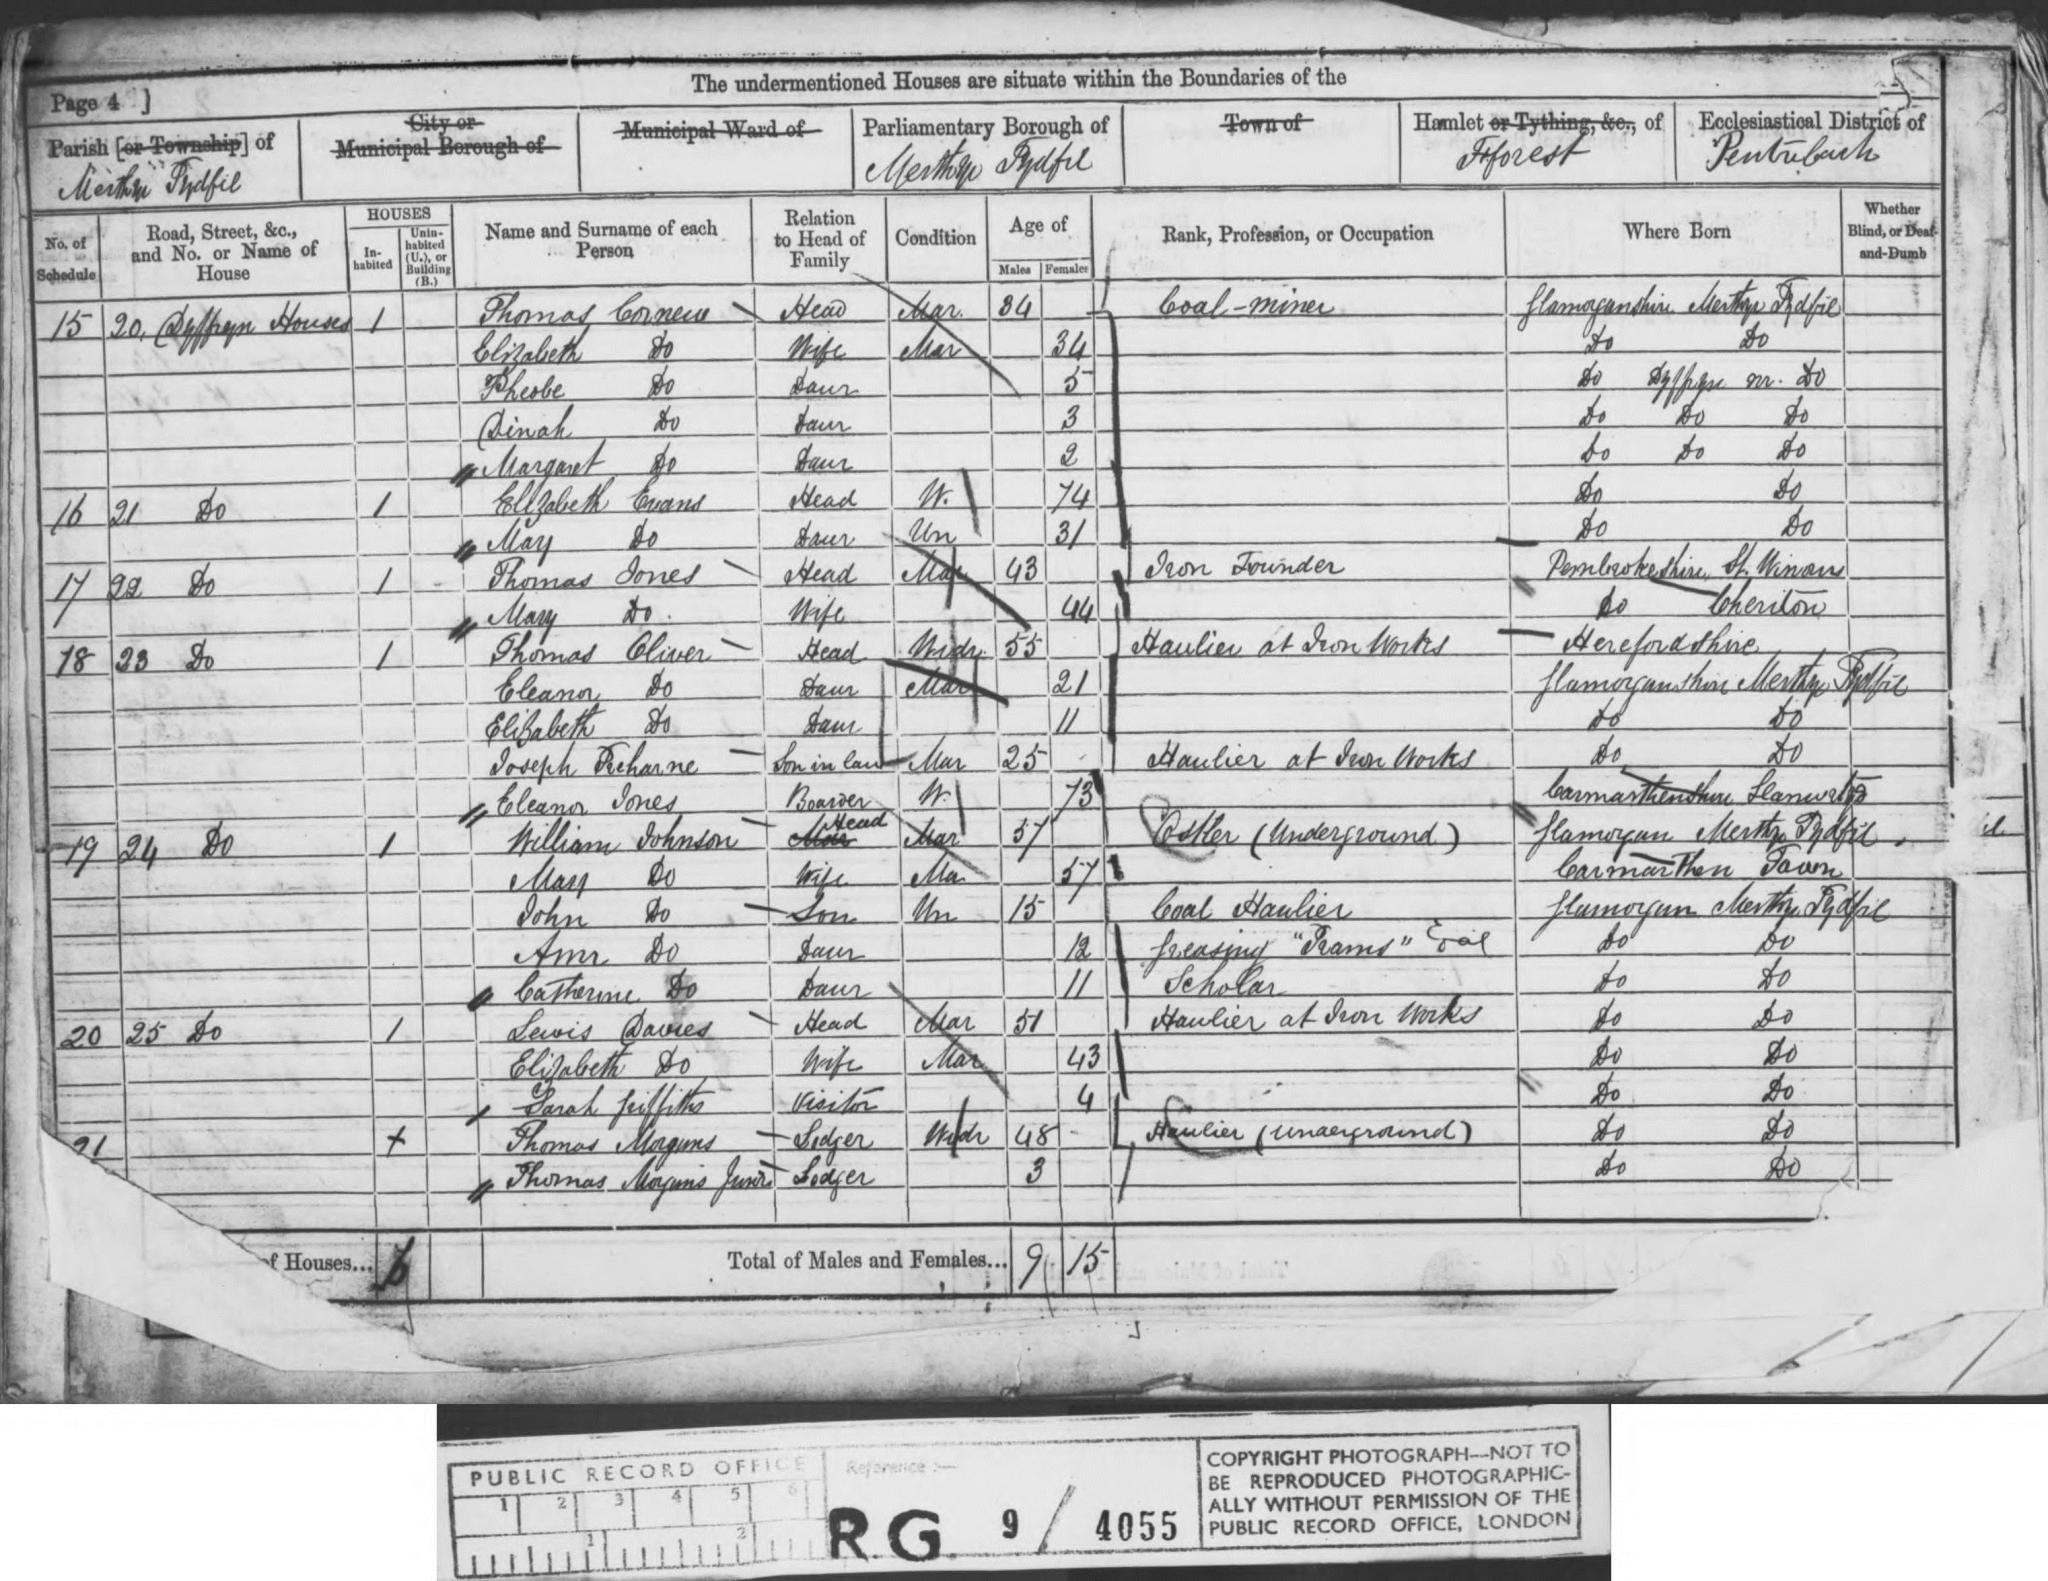 The undermentioned Houses are situate within the Boundaries of the
Page 4 ]
Parish [or Township] of Merthyr Tydfil
City or Municipal Borough of
Municipal Ward of
Parliamentary Borough of Merthyr Tydfil
Town of
Hamlet or Tything, &c., of Fforest
Ecclesiastical District of Pentrebach
No. of Schedule
Road, Street, &c., and No. or Name of House
HOUSES
In-habited
Unin-habited (U.), or Building (B.)
Name and Surname of each Person
Relation to Head of Family
Condition
Age of
Males Females
Rank, Profession, or Occupation
Where Born
Whether Blind, or Deaf-and-Dumb
15 20, Dyffryn Houses 1 Thomas Head Mar. 34 Coal-miner Glamorganshire Merthyr Tydfil
Elizabeth Do Wife Mar 34 Do Do
Pheobe Do Daur 5 Do Dyffryn nr. Do
Dinah Do Daur 3 Do Do Do
Margaret Do Daur 2 Do Do Do
16 21 Do 1 Elizabeth Evans Head W. 74 Do Do
Mary Do Daur Un 31 Do Do
17 22 Do 1 Thomas Jones Head Mar 43 Iron Founder Pembrokeshire St.
Mary Do Wife 44 Do Cheriton
18 23 Do 1 Thomas Oliver Head Widr. 55 Haulier at Iron Works Herefordshire
Eleanor Do Daur Mar 21 Glamorganshire Merthyr Tydfil
Elizabeth Do Daur 11 Do Do
Joseph Treharne Son in law Mar 25 Haulier at Iron Works Do Do
Eleanor Jones Boarder W. 73 Carmarthenshire
19 24 Do 1 William Johnson Head Mar 57 Ostler (Underground) Glamorgan Merthyr Tydfil
Mary Do Wife Mar 57 Carmarthen Town
John Do Son Un 15 Coal Haulier Glamorgan Merthyr Tydfil
Ann Do Daur 12 Greasing "Trams" Coal Do Do
Catherine Do Daur 11 Scholar Do Do
20 25 Do 1 Lewis Davies Head Mar 51 Haulier at Iron Works Do Do
Elizabeth Do Wife Mar 43 Do Do
Sarah Griffiths Visitor 4 Do Do
21 + Thomas Morgans Lodger Widr 48 Haulier (Underground) Do Do
Thomas Morgans Junr Lodger 3 Do Do
of Houses...
Total of Males and Females... 9 15
PUBLIC RECORD OFFICE
1 2 3 4 5 6
1 2
Reference :-
RG 9/4055
COPYRIGHT PHOTOGRAPH—NOT TO
BE REPRODUCED PHOTOGRAPHIC-
ALLY WITHOUT PERMISSION OF THE
PUBLIC RECORD OFFICE, LONDON